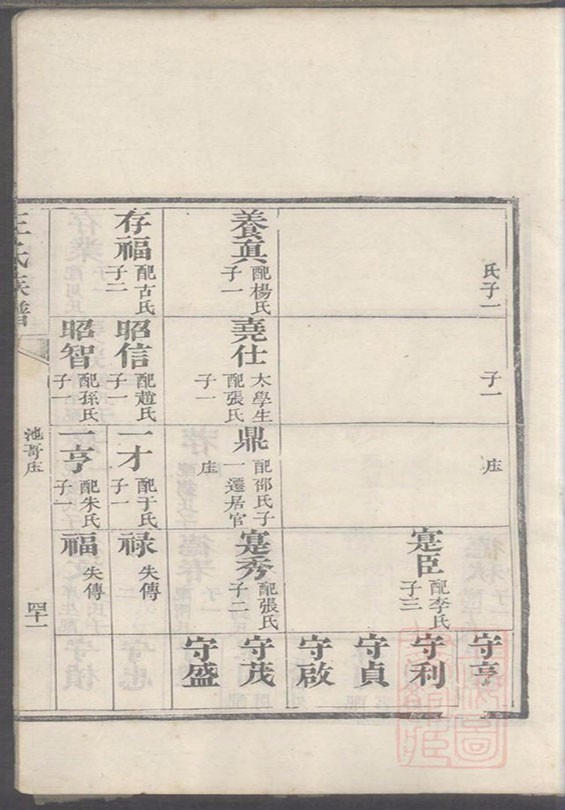 氏子一
養真 配楊氏
子一
存福 配古氏
子二
子一
堯仕 太學生
配張氏
子一
昭信 配趙氏
子一
昭智 配孫氏
子一
庄
鼎 配邵氏子
一遷居官
庄
一才 配于氏
子一
一亨 配朱氏
子一
寔臣 配李氏
子三
寔秀 配張氏
子二
祿 失傳
福 失傳
守亨
守利
守貞
守啟
守茂
守盛
王氏族譜
池哥庄
四十一